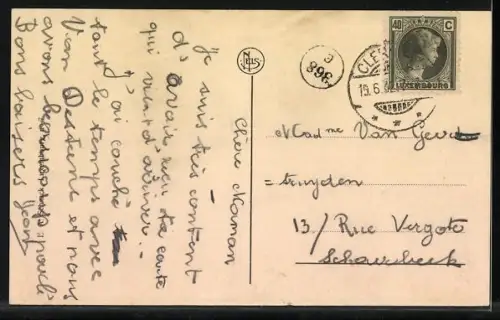 Chère Maman
Je suis très content
d'avoir reçu ta carte
qui vient d'arriver.-
J'ai couché
tout le temps avec
Van Destene et nous
avons beaucoup parlé
Bons baisers Jean
NELS
398
C
CLE
15.6.
40 C
LUXEMBOURG
Madme Van Geert
=truyden
13/ Rue Vergote
Schaerbeek